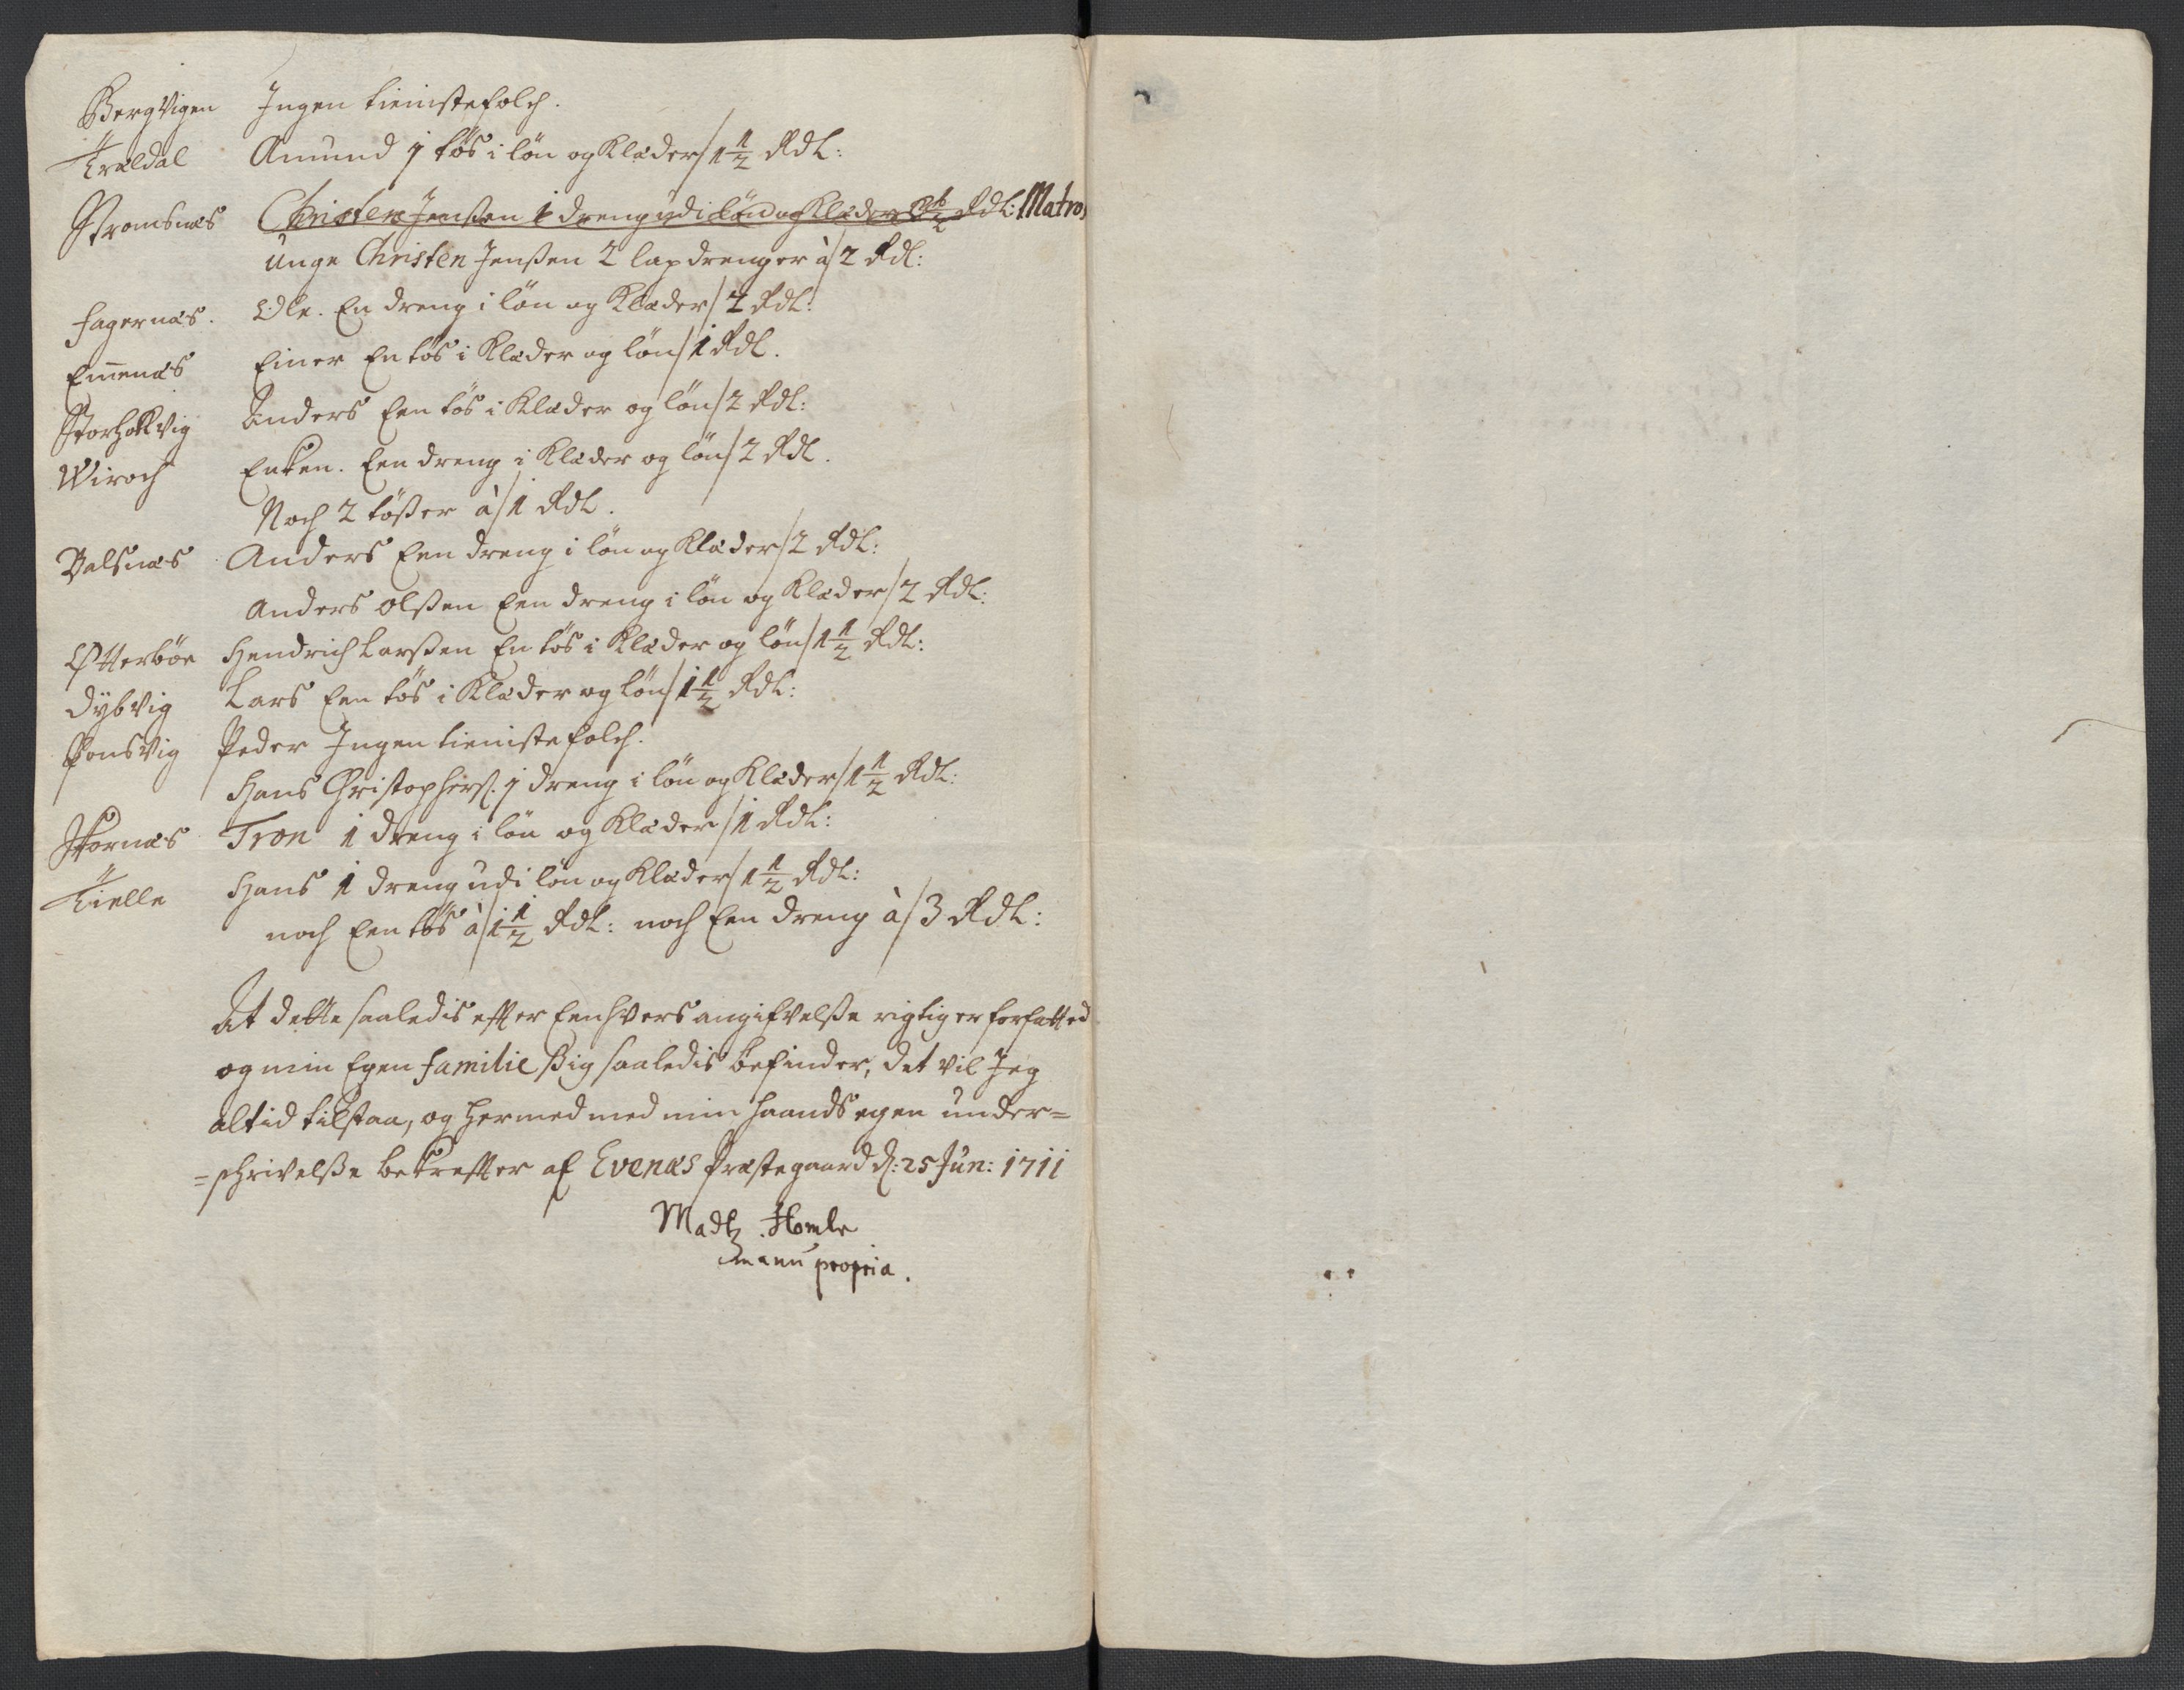 Bergvigen Ingen tieniste folch.
Trældal Amund 1 tøs i løn og Klæder / 1 1/2 Rdl:
Strømsnæs Christen Jenßen 1 dreng udi Løn og Klæder 2 1/2 Rdl: Matros
Unge Christen Jenßen 2 lapdrenger à / 2 Rdl:
Fagernæs. Ole. En dreng i løn og Klæder / 2 Rdl:
Emmenæs Einer En tøs i Klæder og løn / 1 Rdl.
Anders Een tøs i Klæder og løn / 2 Rdl:
Wiroch Enken. Een dreng i Klæder og løn / 2 Rdl.
Noch 2 tøßer à / 1 Rdl.
Palsnæs Anders Een dreng i løn og Klæder / 2 Rdl:
Anders Olßen Een dreng i løn og Klæder / 2 Rdl:
Otterbøe Hendrich Larßen En tøs i Klæder og løn / 1 1/2 Rdl:
Dybvig Lars Een tøs i Klæder og løn / 1 1/2 Rdl:
Ponsvig Peder Ingen tieniste folch.
Hans Christophers. 1 dreng i løn og Klæder / 1 1/2 Rdl:
Skornæs Tron 1 dreng i løn og Klæder / 1 Rdl:
Tielle Hans 1 dreng udi løn og Klæder / 1 1/2 Rdl:
noch Een tøs à / 1 1/2 Rdl: noch Een dreng à / 3 Rdl:
At dette saaledis efter Eenhvers angifvelße rigtig er forfatted
og min Egen familie ßig saaledis befinder, det vil Jeg
altid tilstaa, og hermed med min haands egen under=
=schrivelße bekreffter af Evenæs Præstegaard d: 25 Jun: 1711
Madtz Homle
manu propria.